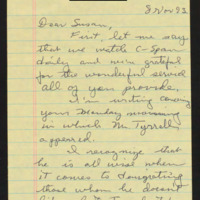 8 Nov 92
Dear Susan,
First, let me say
that we watch C-Span
daily and are grateful
for the wonderful service
all of you provide.
I'm writing
your Monday morning
in which Mr Tyrrell
apperred.
I recognize that
he is all wise when
it comes to denigrating
those whom he doesn't